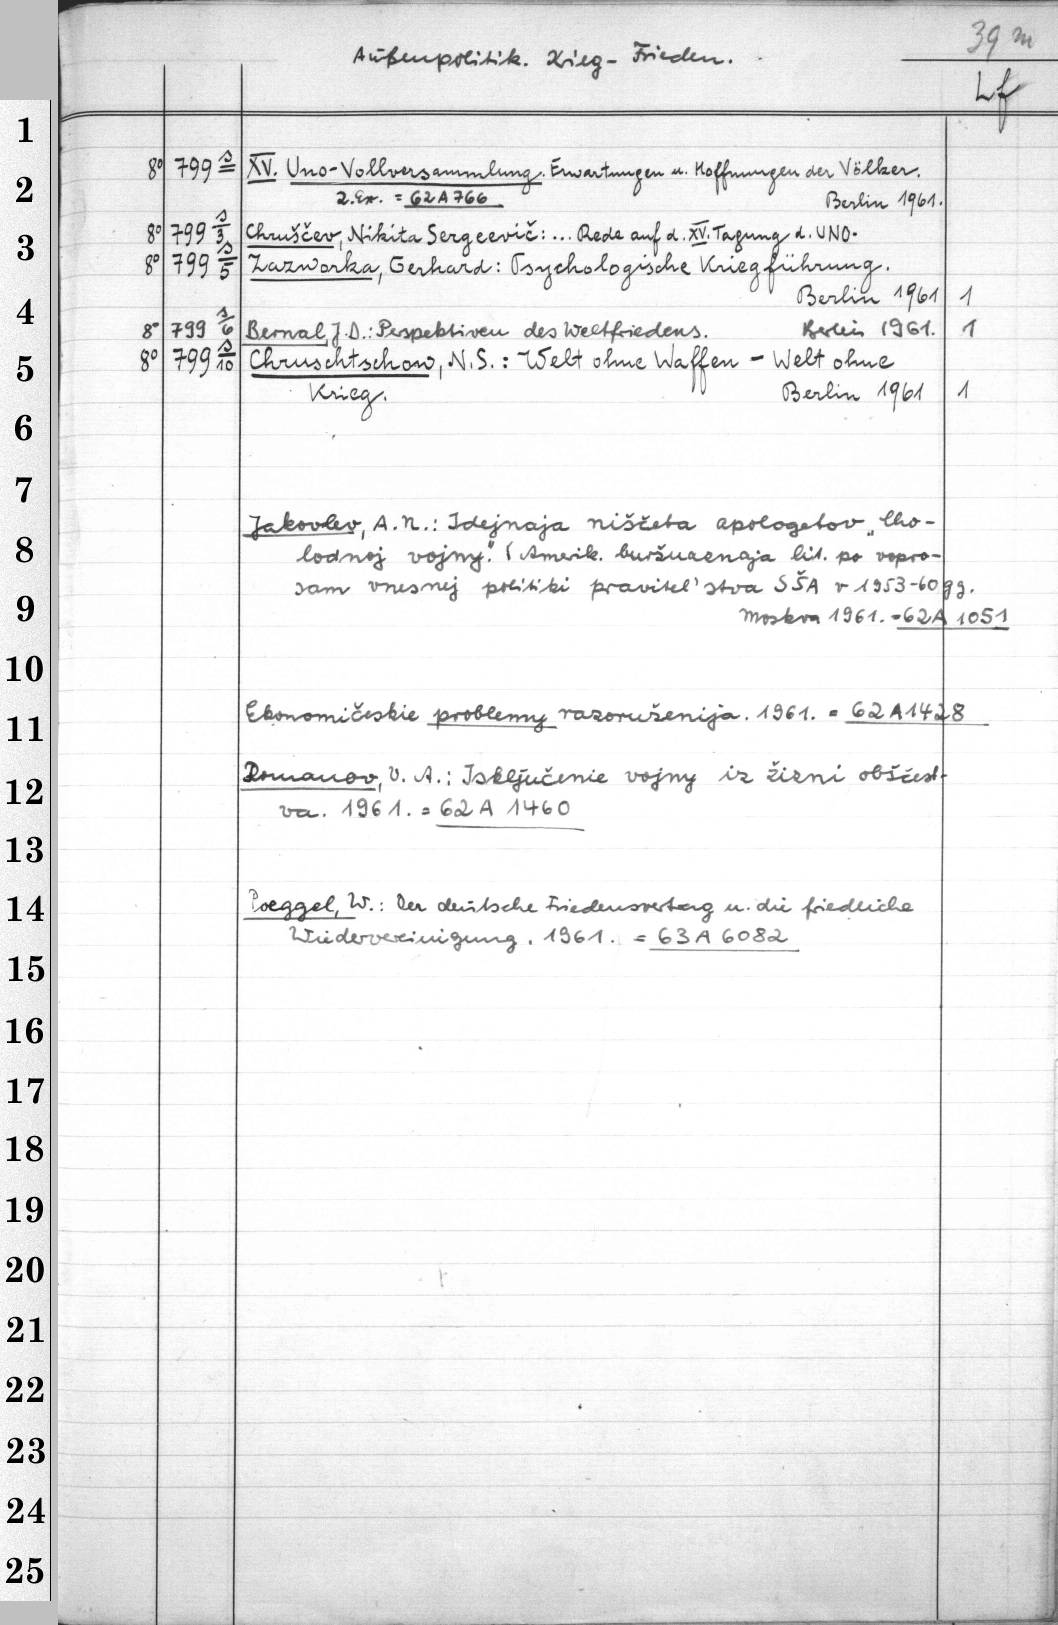 39 m
Außenpolitik. Krieg - Frieden.
Lf
8° 799 s XV. Uno-Vollversammlung. Erwartungen u. Hoffnungen der Völker.
2. Ex. = 62A766 Berlin 1961.
8° 799 s/3 Chruščev, Nikita Sergeevič: ... Rede auf d. XV. Tagung d. UNO.
8° 799 s/5 Zazworka, Gerhard: Psychologische Kriegführung.
Berlin 1961 1
8° 799 s/6 Bernal, J.D.: Perspektiven des Weltfriedens. Berlin 1961. 1
8° 799 s/10 Chruschtschow, N.S.: Welt ohne Waffen - Welt ohne
Krieg. Berlin 1961 1
Jakovlev, A.N.: Idejnaja niščeta apologetov „Cho-
lodnoj vojny." (Amerik. buržuaznaja lit. po vopro-
sam vnesnej politiki pravitel'stva SŠA v 1953-60 gg.
Moskva 1961. = 62A 1051
Ekonomičeskie problemy razoruženija. 1961. = 62A1428
Romanov, V. A.: Isključenie vojny iz žizni obščest-
va. 1961. = 62A 1460
Poeggel, W.: Der deutsche Friedensvertrag u. die friedliche
Wiedervereinigung. 1961. = 63A 6082
1
2
3
4
5
6
7
8
9
10
11
12
13
14
15
16
17
18
19
20
21
22
23
24
25